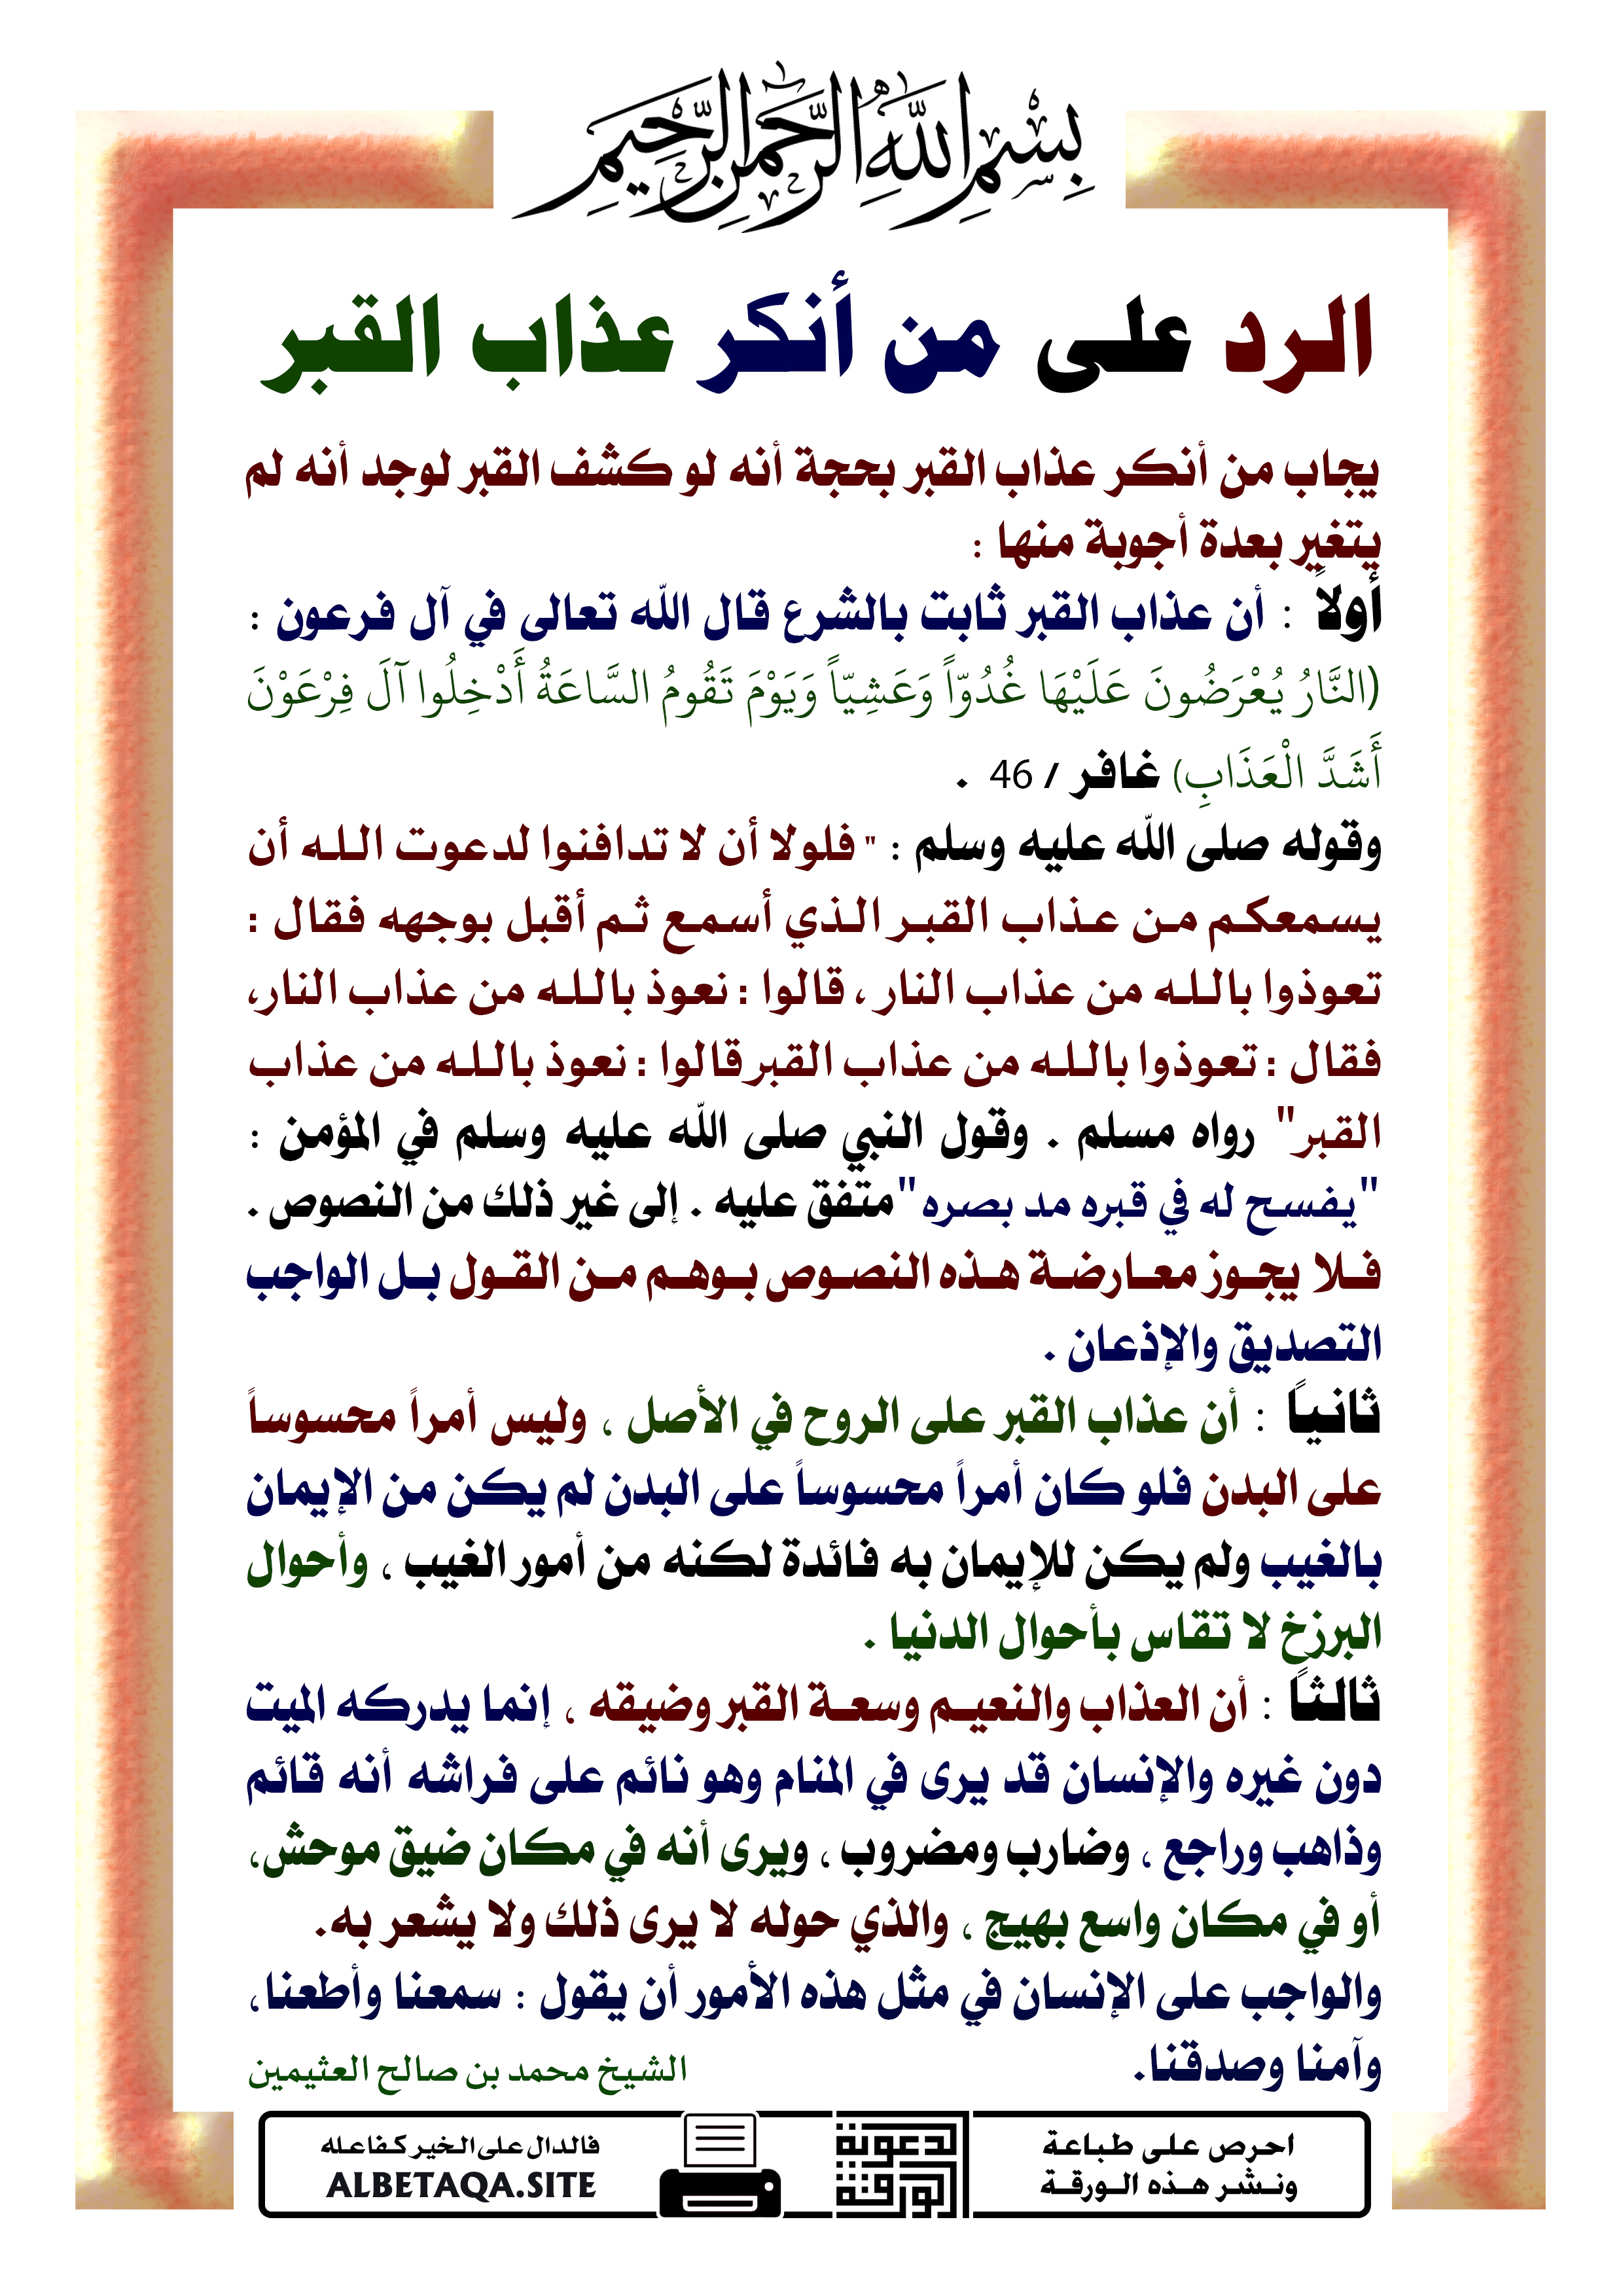 بِسْمِ اللَّهِ الرَّحْمَنِ الرَّحِيمِ
الرد على من أنكر عذاب القبر
يجاب من أنكر عذاب القبر بحجة أنه لو كشف القبر لوجد أنه لم
يتغير بعدة أجوبة منها :
أولاً : أن عذاب القبر ثابت بالشرع قال الله تعالى في آل فرعون :
(النَّارُ يُعْرَضُونَ عَلَيْهَا غُدُوّاً وَعَشِيّاً وَيَوْمَ تَقُومُ السَّاعَةُ أَدْخِلُوا آلَ فِرْعَوْنَ
أَشَدَّ الْعَذَابِ) غافر / 46 .
وقوله صلى الله عليه وسلم : " فلولا أن لا تدافنوا لدعوت الله أن
يسمعكم من عذاب القبر الذي أسمع ثم أقبل بوجهه فقال :
تعوذوا بالله من عذاب النار ، قالوا : نعوذ بالله من عذاب النار،
فقال : تعوذوا بالله من عذاب القبر قالوا : نعوذ بالله من عذاب
القبر" رواه مسلم . وقول النبي صلى الله عليه وسلم في المؤمن :
"يفسح له في قبره مد بصره" متفق عليه . إلى غير ذلك من النصوص .
فلا يجوز معارضة هذه النصوص بوهم من القول بل الواجب
التصديق والإذعان .
ثانياً : أن عذاب القبر على الروح في الأصل ، وليس أمراً محسوساً
على البدن فلو كان أمراً محسوساً على البدن لم يكن من الإيمان
بالغيب ولم يكن للإيمان به فائدة لكنه من أمور الغيب ، وأحوال
البرزخ لا تقاس بأحوال الدنيا .
ثالثاً : أن العذاب والنعيم وسعة القبر وضيقه ، إنما يدركه الميت
دون غيره والإنسان قد يرى في المنام وهو نائم على فراشه أنه قائم
وذاهب وراجع ، وضارب ومضروب ، ويرى أنه في مكان ضيق موحش،
أو في مكان واسع بهيج ، والذي حوله لا يرى ذلك ولا يشعر به.
والواجب على الإنسان في مثل هذه الأمور أن يقول : سمعنا وأطعنا،
وآمنا وصدقنا.
الشيخ محمد بن صالح العثيمين
احرص على طباعة
ونشر هذه الورقة
لدعوية
الورقية
فالدال على الخير كفاعله
ALBETAQA.SITE